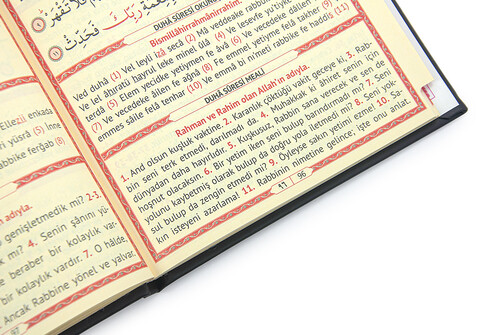 رَبِّكَ فَحَدِّثْ
DUHÂ SÛRESİ OKUNUŞU
Bismillâhirrahmânirrahîm.
Ved duhâ (1) Vel leyli izâ secâ (2) Mâ veddeake rabbüke
Ve lel âhıratü hayrul leke minel ûlâ (4) Ve lesevfe yu'tîyke
terdâ (5) Elem yecidke yetîymen fe âvâ (6) Ve vecedeke dâllen
(7) Ve vecedeke âilen fe ağnâ (8) Fe emmel yetîyme felâ takher (9)
emmes sâile felâ tenhar (10) Ve emmâ bi nı'meti rabbike fe haddis (11)
DUHÂ SÛRESİ MEALİ
Rahman ve Rahîm olan Allah'ın adıyla.
1. And olsun kuşluk vaktine. 2. Karanlık çöktüğü vakit geceye ki, 3. Rab-
bin seni terk etmedi, darılmadı da. 4. Muhakkak ki âhiret senin için
dünyadan daha hayırlıdır. 5. Kuşkusuz, Rabbin sana verecek ve sen de
hoşnut olacaksın. 6. Bir yetim iken seni bulup barındırmadı mı? 7. Seni
yolunu kaybetmiş olarak bulup da doğru yola iletmedi mi? 8. Seni yok-
sul bulup da zengin etmedi mi? 9. Öyleyse sakın yetimi ezme! 10. Sa-
kın isteyeni azarlama! 11. Rabbinin nimetine gelince; işte onu anlat.
96
Ellezî enkada
yüsrâ (5) İnne
rabbike ferğab (8)
adıyla.
genişletmedik mi? 2-3.
mi? 4. Senin şânını yü-
e beraber bir kolaylık var-
bir kolaylık vardır. 7. O hâlde,
Ancak Rabbine yönel ve yalvar.